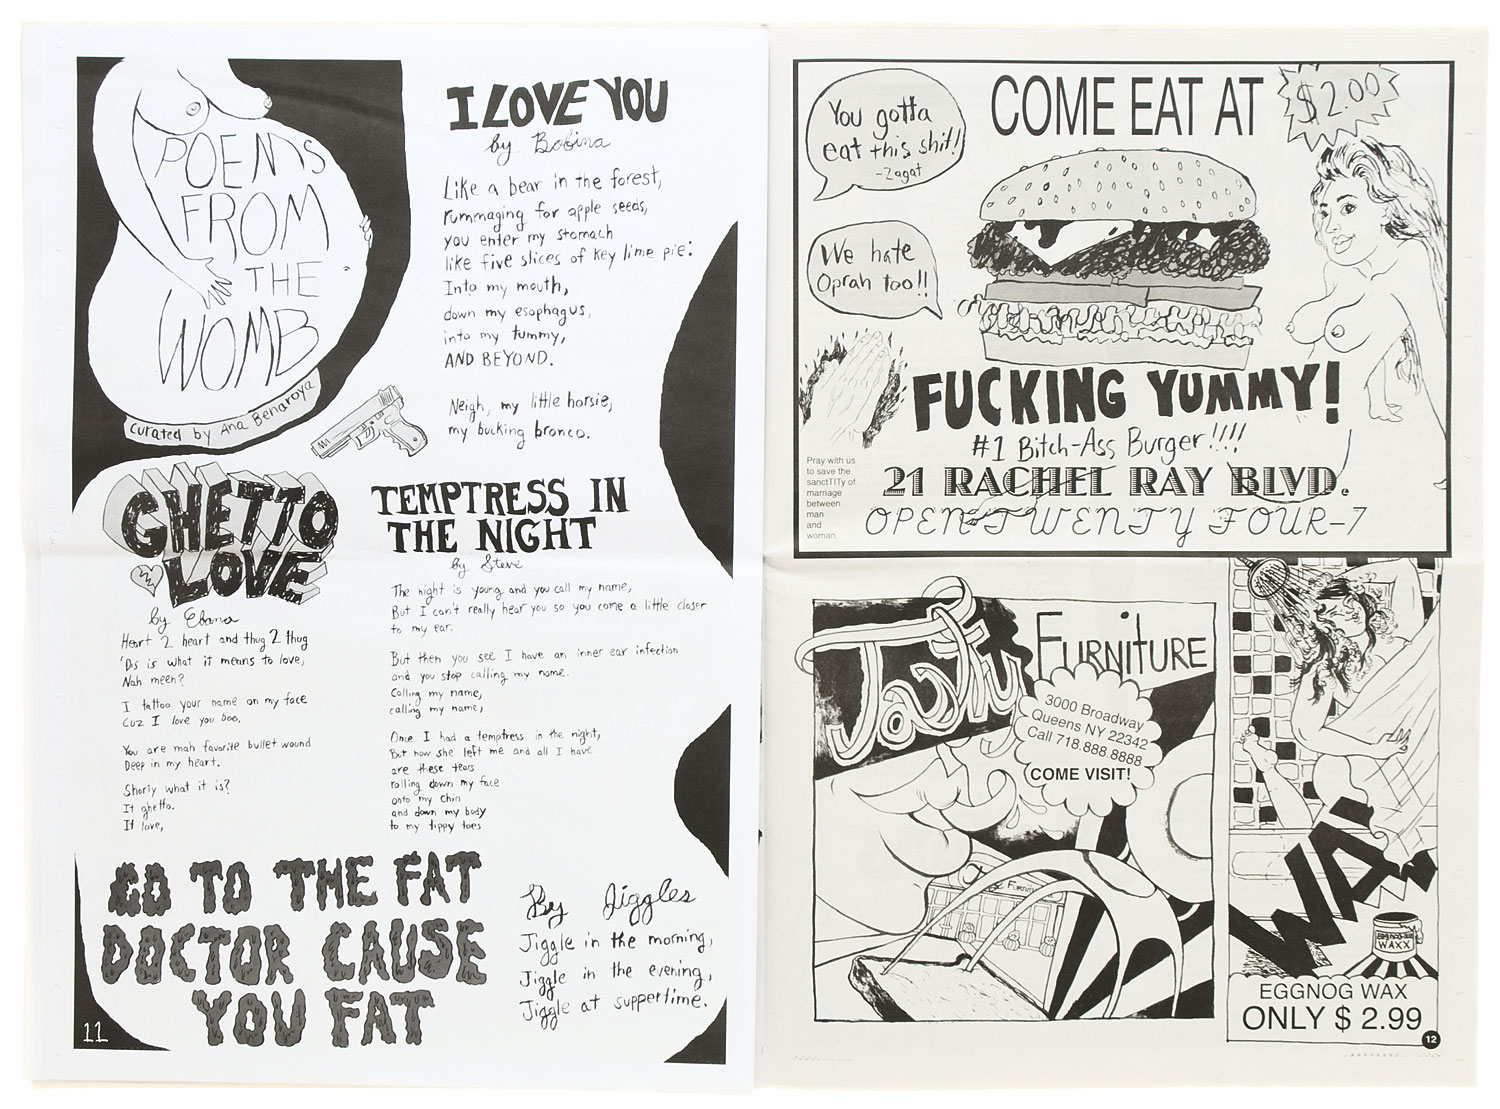 POEMS
FROM
THE
WOMB
curated by Ana Benaroya
I LOVE YOU
by Bobina
Like a bear in the forest,
rummaging for apple seeds,
you enter my stomach
like five slices of key lime pie:
Into my mouth,
down my esophagus,
into my tummy,
AND BEYOND.
Neigh, my little horsie,
my bucking bronco.
GHETTO
LOVE
by Ebana
Heart 2 heart and thug 2 thug
'Dis is what it means to love,
Nah meen?
I tattoo your name on my face
Cuz I love you boo.
You are mah favorite bullet wound
Deep in my heart.
Shorly what it is?
It ghetto.
It love,
TEMPTRESS IN
THE NIGHT
by Steve
The night is young and you call my name,
But I can't really hear you so you come a little closer
to my ear.
But then you see I have an inner ear infection
and you stop calling my name.
Calling my name,
calling my name,
Once I had a temptress in the night,
But now she left me and all I have
are these tears
rolling down my face
onto my chin
and down my body
to my tippy toes
GO TO THE FAT
DOCTOR CAUSE
YOU FAT
By Jiggles
Jiggle in the morning,
Jiggle in the evening,
Jiggle at suppertime.
11
You gotta
eat this shit!!
-Zagat
COME EAT AT
$2.00
We hate
Oprah too!!
FUCKING YUMMY!
#1 Bitch-Ass Burger!!!!
Pray with us
to save the
sancTITy of
marriage
between
man
and
woman.
21 RACHEL RAY BLVD.
OPEN TWENTY FOUR-7
FURNITURE
3000 Broadway
Queens NY 22342
Call 718.888.8888
COME VISIT!
Furniture
WAX
WAXX
EGGNOG WAX
ONLY $ 2.99
12